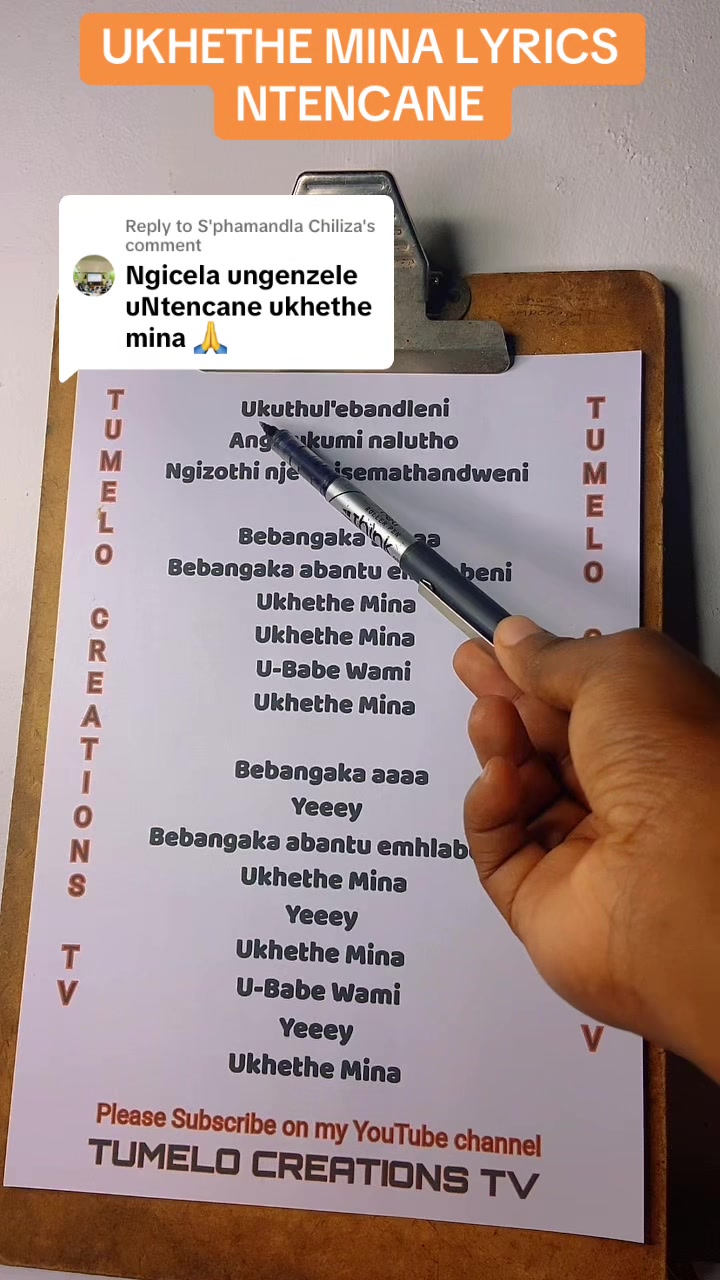 UKHETHE MINA LYRICS
NTENCANE
Reply to S'phamandla Chiliza's
comment
Ngicela ungenzele
uNtencane ukhethe
mina 🙏
Ukuthul'ebandleni
nalutho
Ngizothi isemathandweni
Bebangaka
Bebangaka abantu
Ukhethe Mina
Ukhethe Mina
U-Babe Wami
Ukhethe Mina
Bebangaka aaaa
Yeeey
Bebangaka abantu
Ukhethe Mina
Yeeey
Ukhethe Mina
U-Babe Wami
Yeeey
Ukhethe Mina
TUMELO CREATIONS TV
TUMELO
V
Please Subscribe on my YouTube channel
TUMELO CREATIONS TV